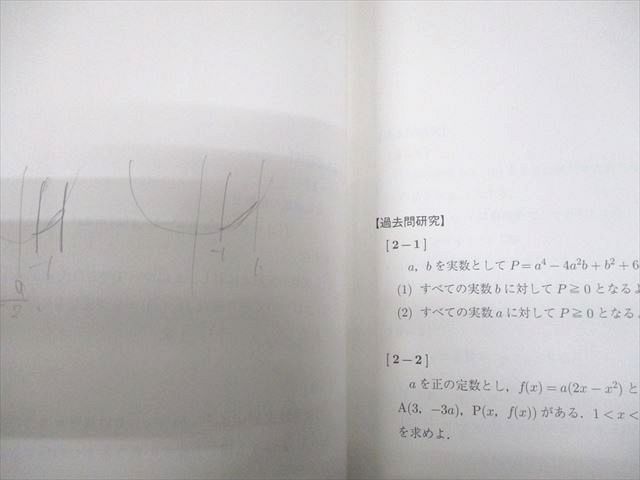 -1
a
2
-1
1
【過去問研究】
[2-1]
a, bを実数として P=a⁴-4a²b+b²+6
(1) すべての実数bに対して P≧0 となるよ
(2) すべての実数aに対して P≧0 となる
[2-2]
aを正の定数とし, f(x)=a(2x-x²) と
A(3, -3a), P(x, f(x)) がある. 1<x<
を求めよ.